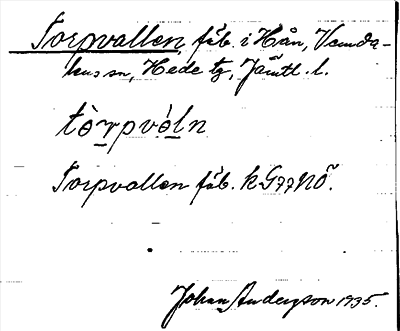 Torpvallen, fäb. i Hån, Vemda-
lens sn, Hede tg, Jämtl. l.
tòrpvòln
Torpvallen fäb. k G77NÖ.
Johan Anderson 1935.